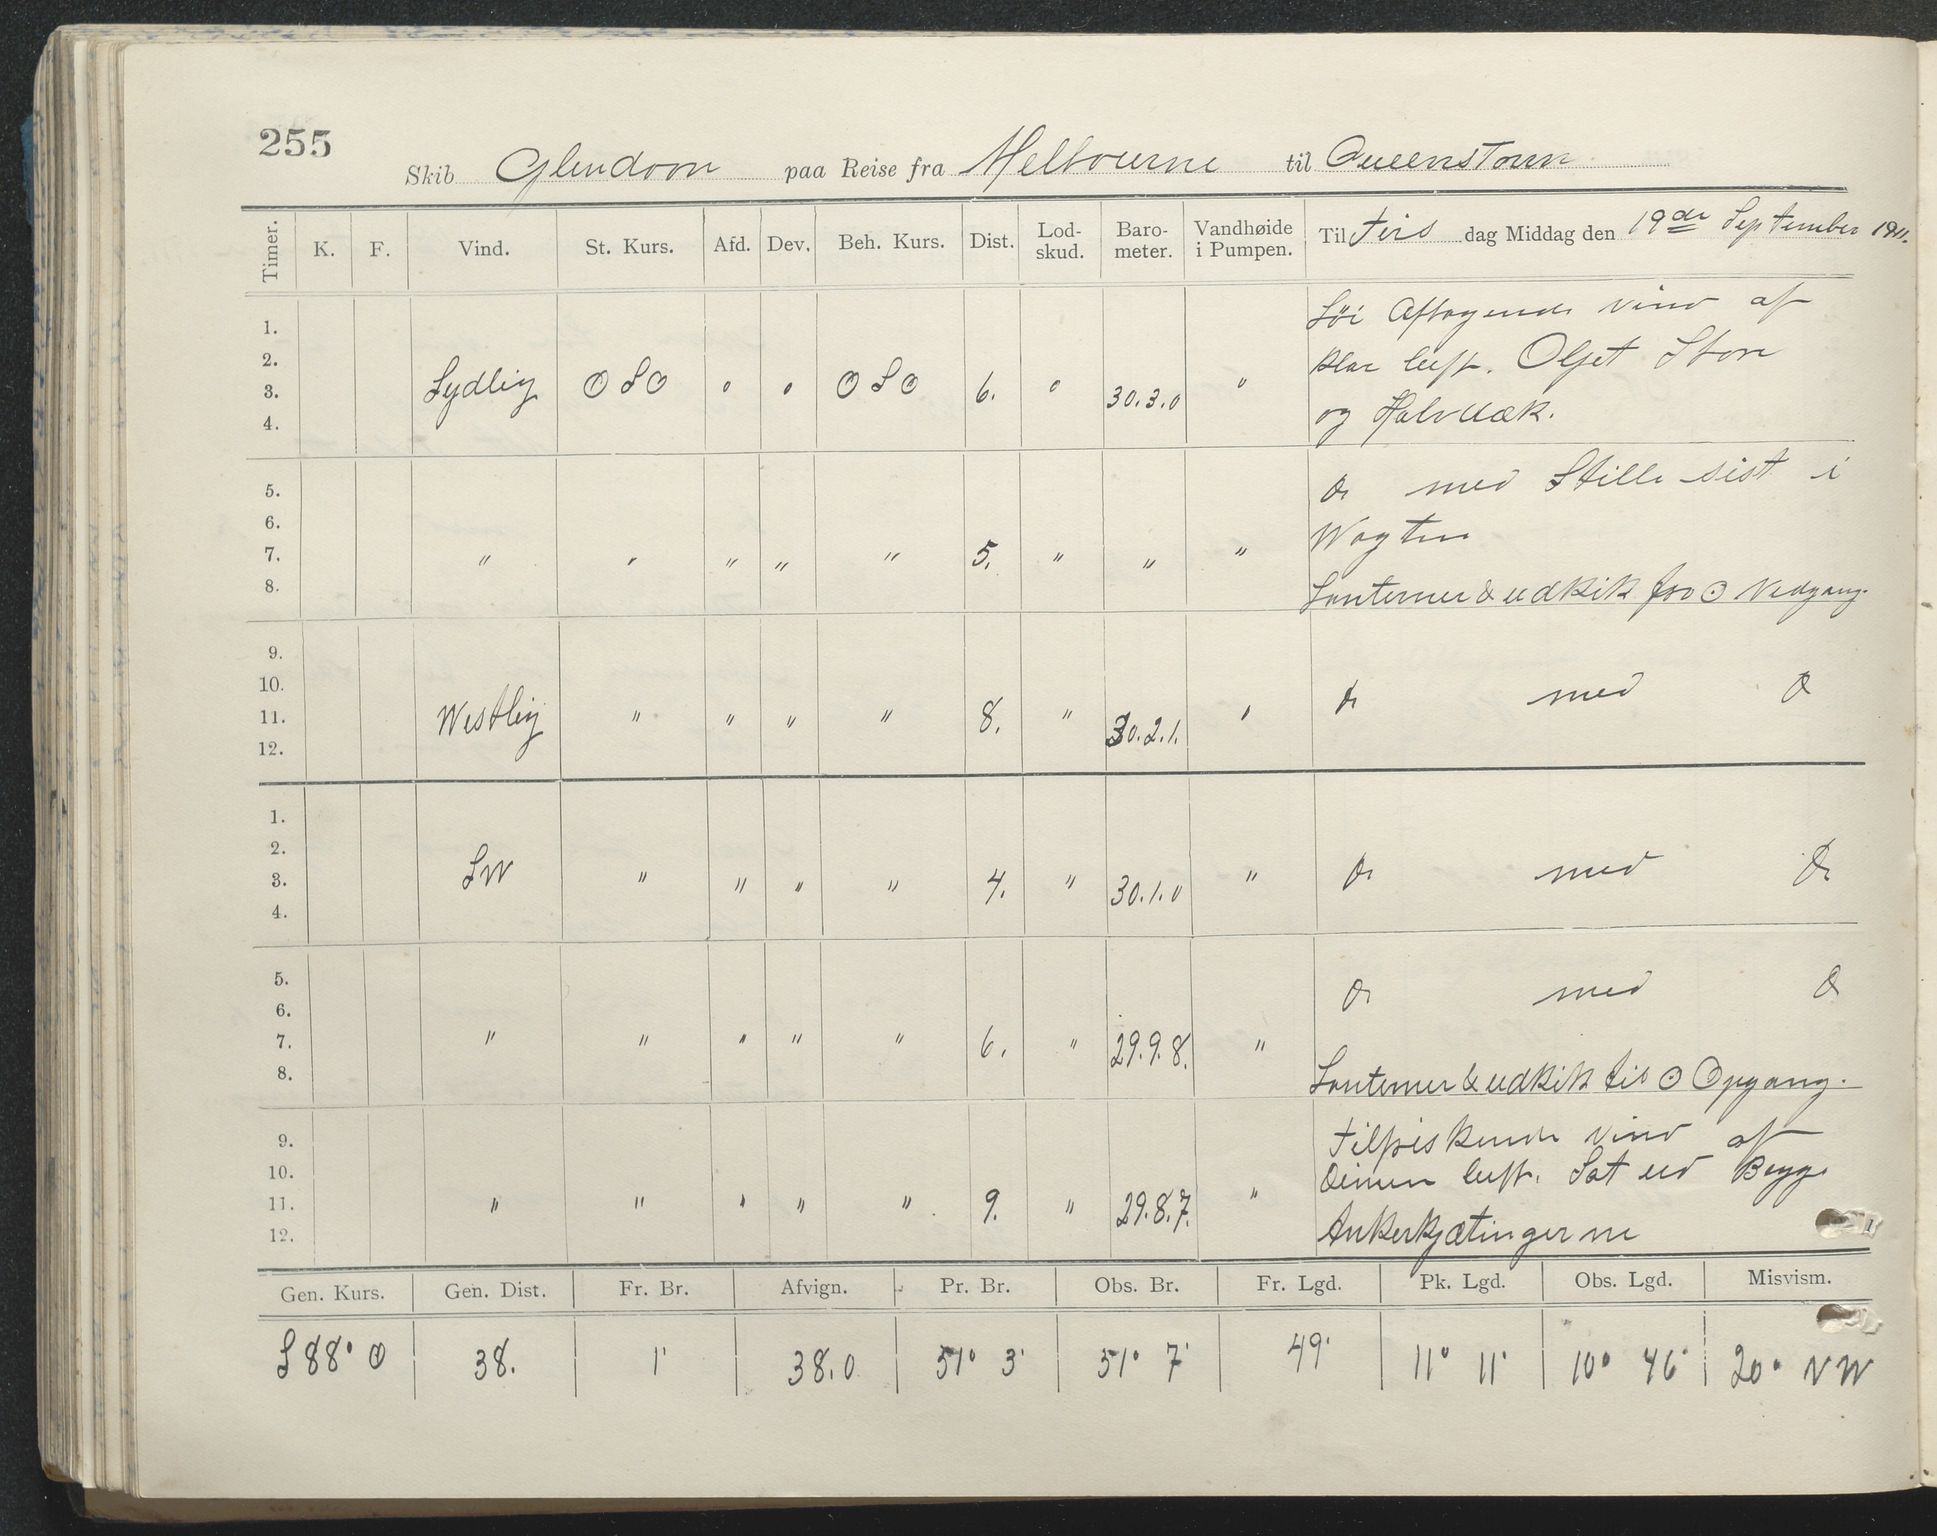 255
Skib Glendoon paa Reise fra Melbourne til Queenstown
Timer. K. F. Vind. St. Kurs. Afd. Dev. Beh. Kurs. Dist. Lod-skud. Baro-meter. Vandhøide i Pumpen. Til Tirs dag Middag den 19de September 1911.
1.
2.
3.
4.
Sydlig OSO " " OSO 6. " 30.3.0 "
Løi Aftagende vind af
klar luft. Oljet Storm
og Halvdæk.
5.
6.
7.
8.
" " " " " 5. " " "
Do med Stille sist i
Wagten
Lanterner & udkik fra ☉ Nedgang.
9.
10.
11.
12.
Westlig " " " " 8. " 30.2.1. "
Do med Do
1.
2.
3.
4.
SW " " " " 4. " 30.1.0 "
Do med Do
5.
6.
7.
8.
" " " " " 6. " 29.9.8. "
Do med Do
Lanterner & udkik til ☉ Opgang.
9.
10.
11.
12.
" " " " " 9. " 29.8.7. "
Tilfriskende vind af
Dimen luft. Sat ud Begge
Ankerkjætingerne
Gen. Kurs. Gen. Dist. Fr. Br. Afvign. Pr. Br. Obs. Br. Fr. Lgd. Pk. Lgd. Obs. Lgd. Misvism.
S 88° O 38. 1' 38.0 51° 3' 51° 7' 49' 11° 11' 10° 46' 20° NW